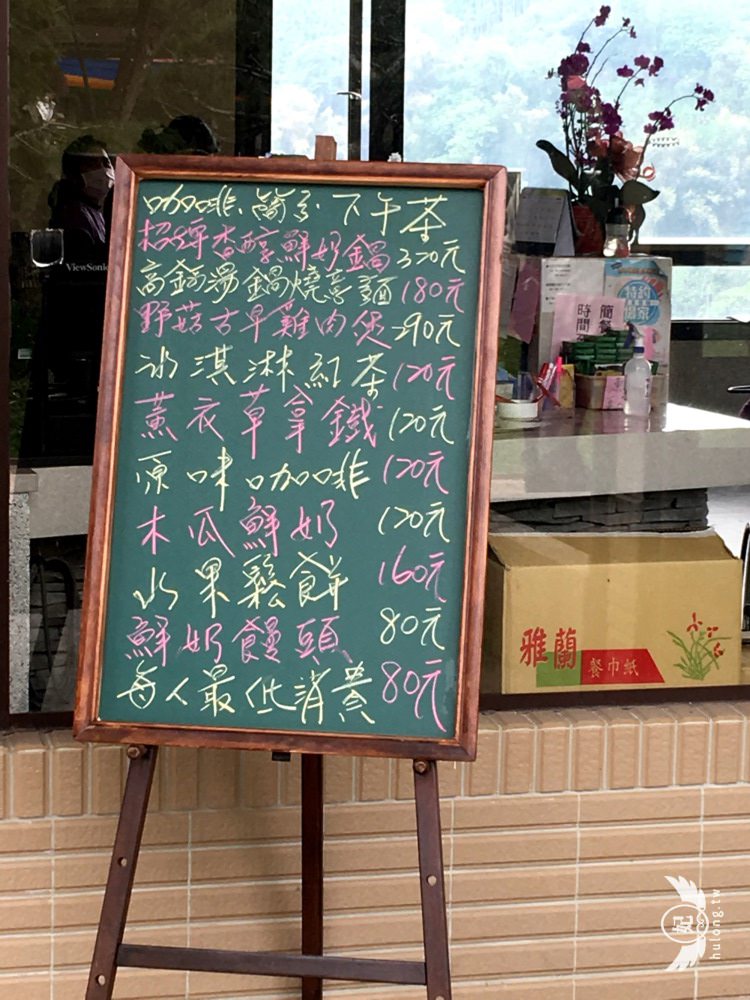 咖啡.簡食.下午茶
招牌香醇鮮奶鍋 320元
高鈣湯鍋燒意麵 180元
野菇古早雞肉煲 290元
冰淇淋紅茶 120元
薰衣草拿鐵 120元
原味咖啡 120元
木瓜鮮奶 120元
水果鬆餅 160元
鮮奶饅頭 80元
每人最低消費 80元
ViewSonic
特約
簡餐
時間
雅蘭
餐巾紙
hulong.tw